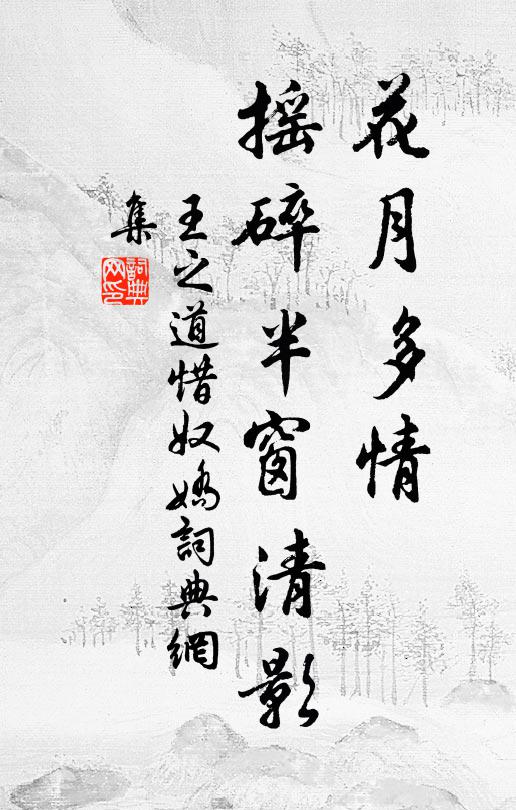 花月多情
摇碎半窗清影
王之道惜奴嬌詞典網
集
詞典
网印